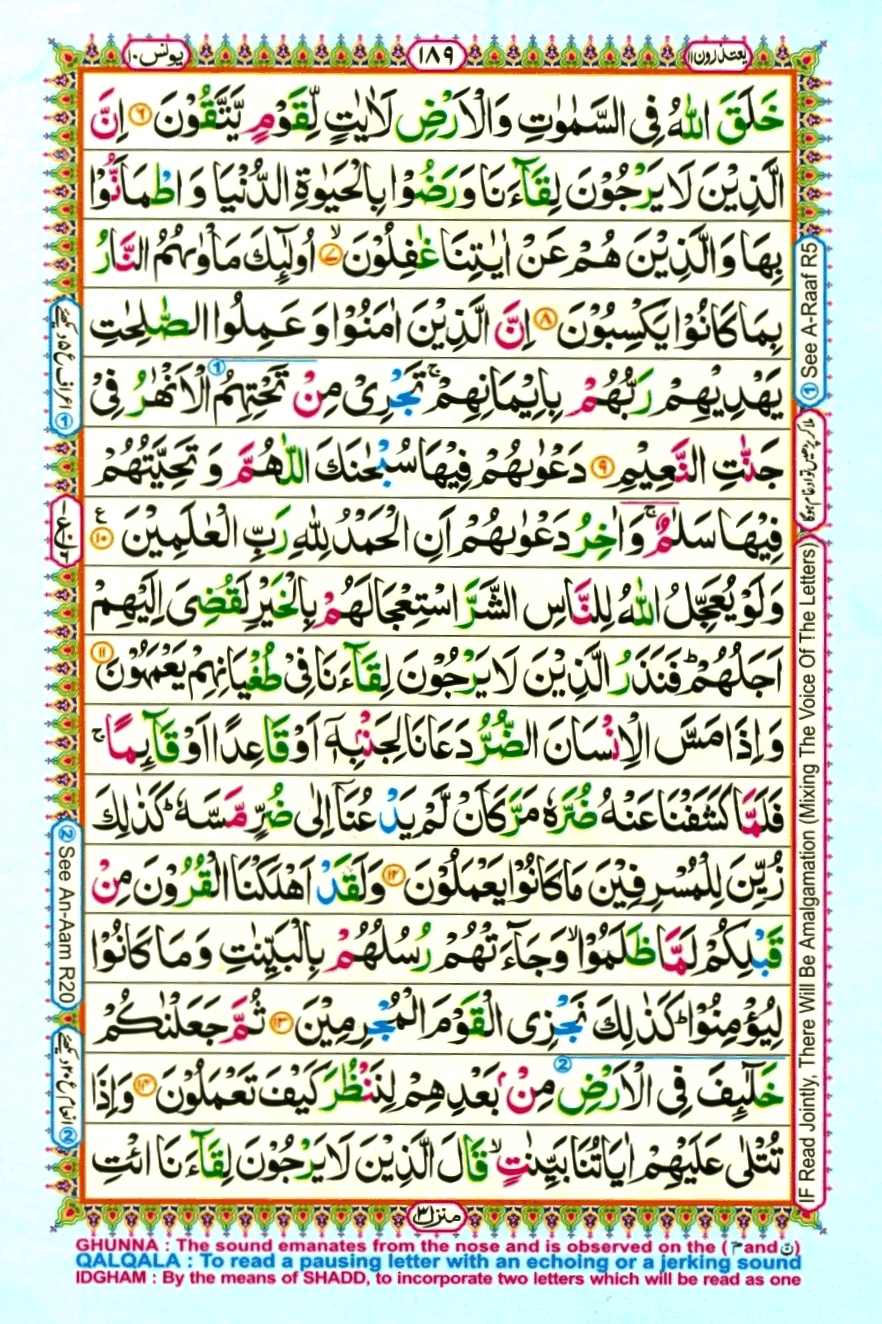 يعتذرون ١١
١٨٩
يونس ١٠
خَلَقَ اللّٰهُ فِى السَّمٰوٰتِ وَالْاَرْضِ لَاٰيٰتٍ لِّقَوْمٍ يَّتَّقُوْنَ ۶ اِنَّ
الَّذِيْنَ لَا يَرْجُوْنَ لِقَآءَنَا وَرَضُوْا بِالْحَيٰوةِ الدُّنْيَا وَاطْمَاَنُّوْا
بِهَا وَالَّذِيْنَ هُمْ عَنْ اٰيٰتِنَا غٰفِلُوْنَ ۙ ۷ اُولٰٓئِكَ مَاْوٰىهُمُ النَّارُ
بِمَا كَانُوْا يَكْسِبُوْنَ ۸ اِنَّ الَّذِيْنَ اٰمَنُوْا وَعَمِلُوا الصّٰلِحٰتِ
يَهْدِيْهِمْ رَبُّهُمْ بِاِيْمَانِهِمْ ۚ تَجْرِىْ مِنْ تَحْتِهِمُ الْاَنْهٰرُ فِىْ
جَنّٰتِ النَّعِيْمِ ۹ دَعْوٰىهُمْ فِيْهَا سُبْحٰنَكَ اللّٰهُمَّ وَتَحِيَّتُهُمْ
فِيْهَا سَلٰمٌ ۚ وَاٰخِرُ دَعْوٰىهُمْ اَنِ الْحَمْدُ لِلّٰهِ رَبِّ الْعٰلَمِيْنَ ۱۰ ع
وَلَوْ يُعَجِّلُ اللّٰهُ لِلنَّاسِ الشَّرَّ اسْتِعْجَالَهُمْ بِالْخَيْرِ لَقُضِىَ اِلَيْهِمْ
اَجَلُهُمْ ؕ فَنَذَرُ الَّذِيْنَ لَا يَرْجُوْنَ لِقَآءَنَا فِىْ طُغْيَانِهِمْ يَعْمَهُوْنَ ۱۱
وَاِذَا مَسَّ الْاِنْسَانَ الضُّرُّ دَعَانَا لِجَنْۢبِهٖٓ اَوْ قَاعِدًا اَوْ قَآئِمًا ۚ
فَلَمَّا كَشَفْنَا عَنْهُ ضُرَّهٗ مَرَّ كَاَنْ لَّمْ يَدْعُنَآ اِلٰى ضُرٍّ مَّسَّهٗ ؕ كَذٰلِكَ
زُيِّنَ لِلْمُسْرِفِيْنَ مَا كَانُوْا يَعْمَلُوْنَ ۱۲ وَلَقَدْ اَهْلَكْنَا الْقُرُوْنَ مِنْ
قَبْلِكُمْ لَمَّا ظَلَمُوْا ۙ وَجَآءَتْهُمْ رُسُلُهُمْ بِالْبَيِّنٰتِ وَمَا كَانُوْا
لِيُؤْمِنُوْا ؕ كَذٰلِكَ نَجْزِى الْقَوْمَ الْمُجْرِمِيْنَ ۱۳ ثُمَّ جَعَلْنٰكُمْ
خَلٰٓئِفَ فِى الْاَرْضِ مِنْۢ بَعْدِهِمْ لِنَنْظُرَ كَيْفَ تَعْمَلُوْنَ ۱۴ وَاِذَا
تُتْلٰى عَلَيْهِمْ اٰيَاتُنَا بَيِّنٰتٍ ۙ قَالَ الَّذِيْنَ لَا يَرْجُوْنَ لِقَآءَنَا ائْتِ
منزل ٣
① See A-Raaf R5
IF Read Jointly, There Will Be Amalgamation (Mixing The Voice Of The Letters)
② See An-Aam R20
GHUNNA : The sound emanates from the nose and is observed on the (مّ and نّ)
QALQALA : To read a pausing letter with an echoing or a jerking sound
IDGHAM : By the means of SHADD, to incorporate two letters which will be read as one